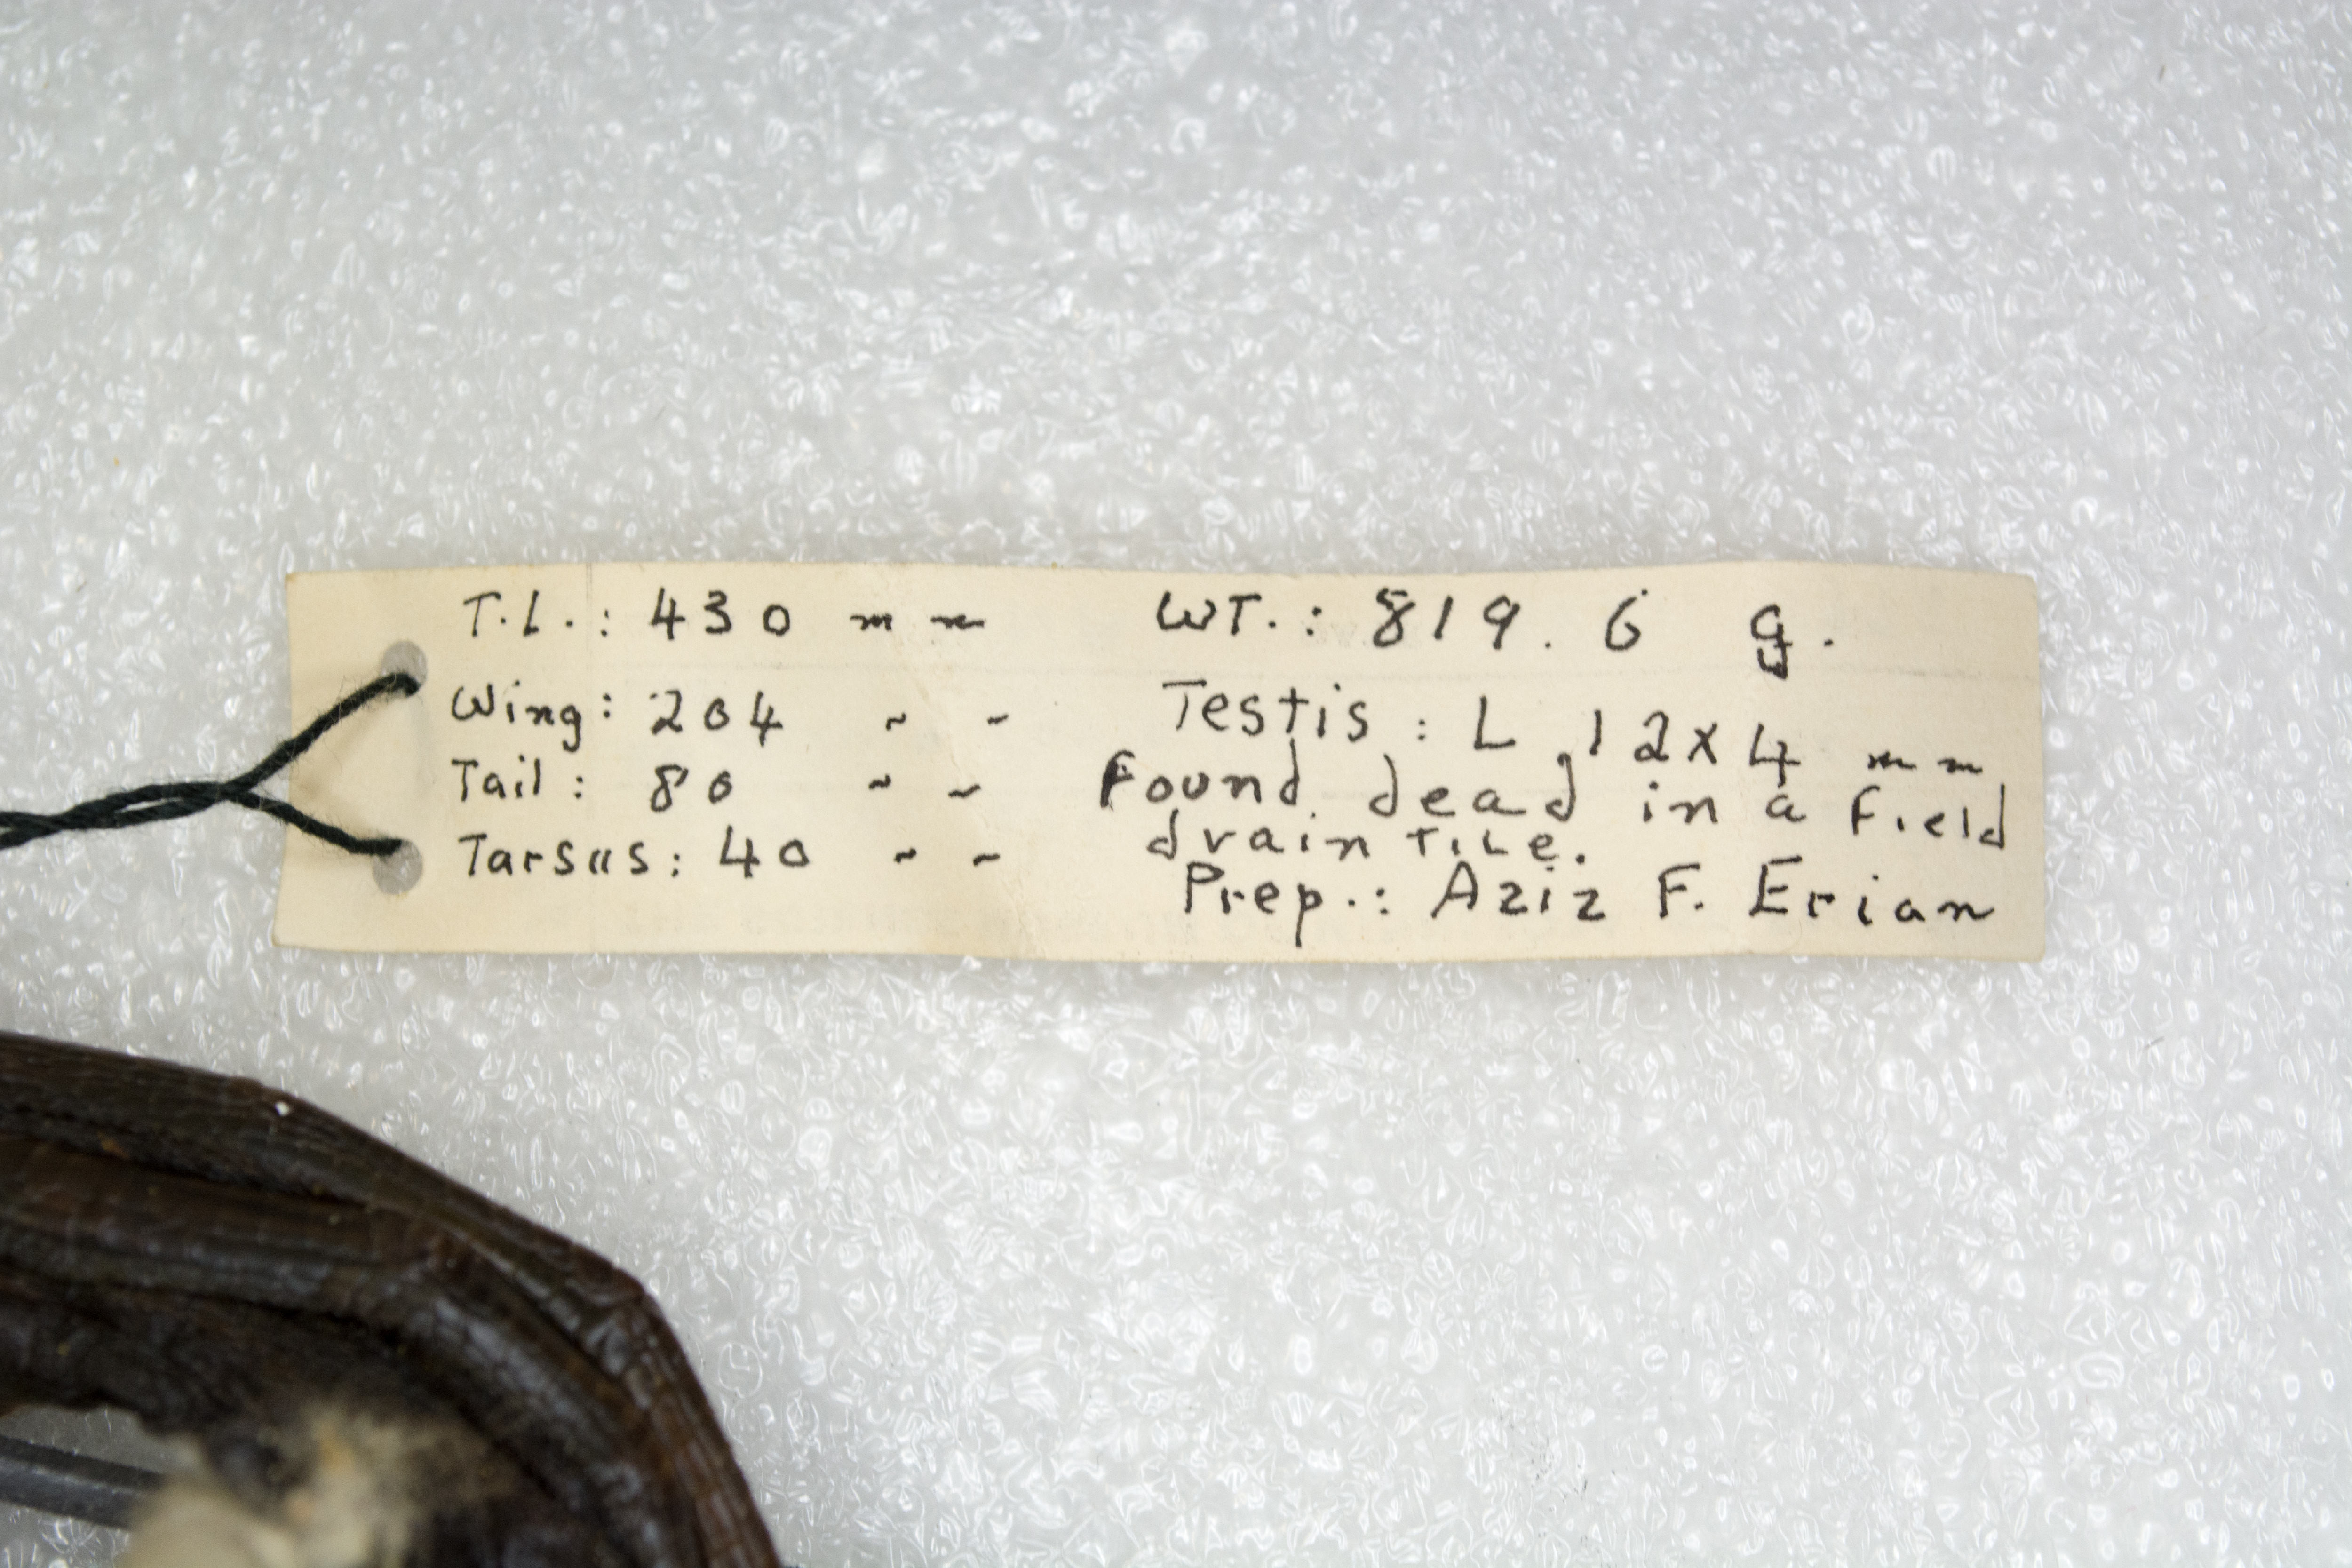 T.L.: 430 mm WT.: 819.6 g.
Wing: 204 " " Testis: L 12x4 mm
Tail: 80 " " Found dead in a field
drain tile.
Tarsus: 40 " " Prep.: Aziz F. Erian